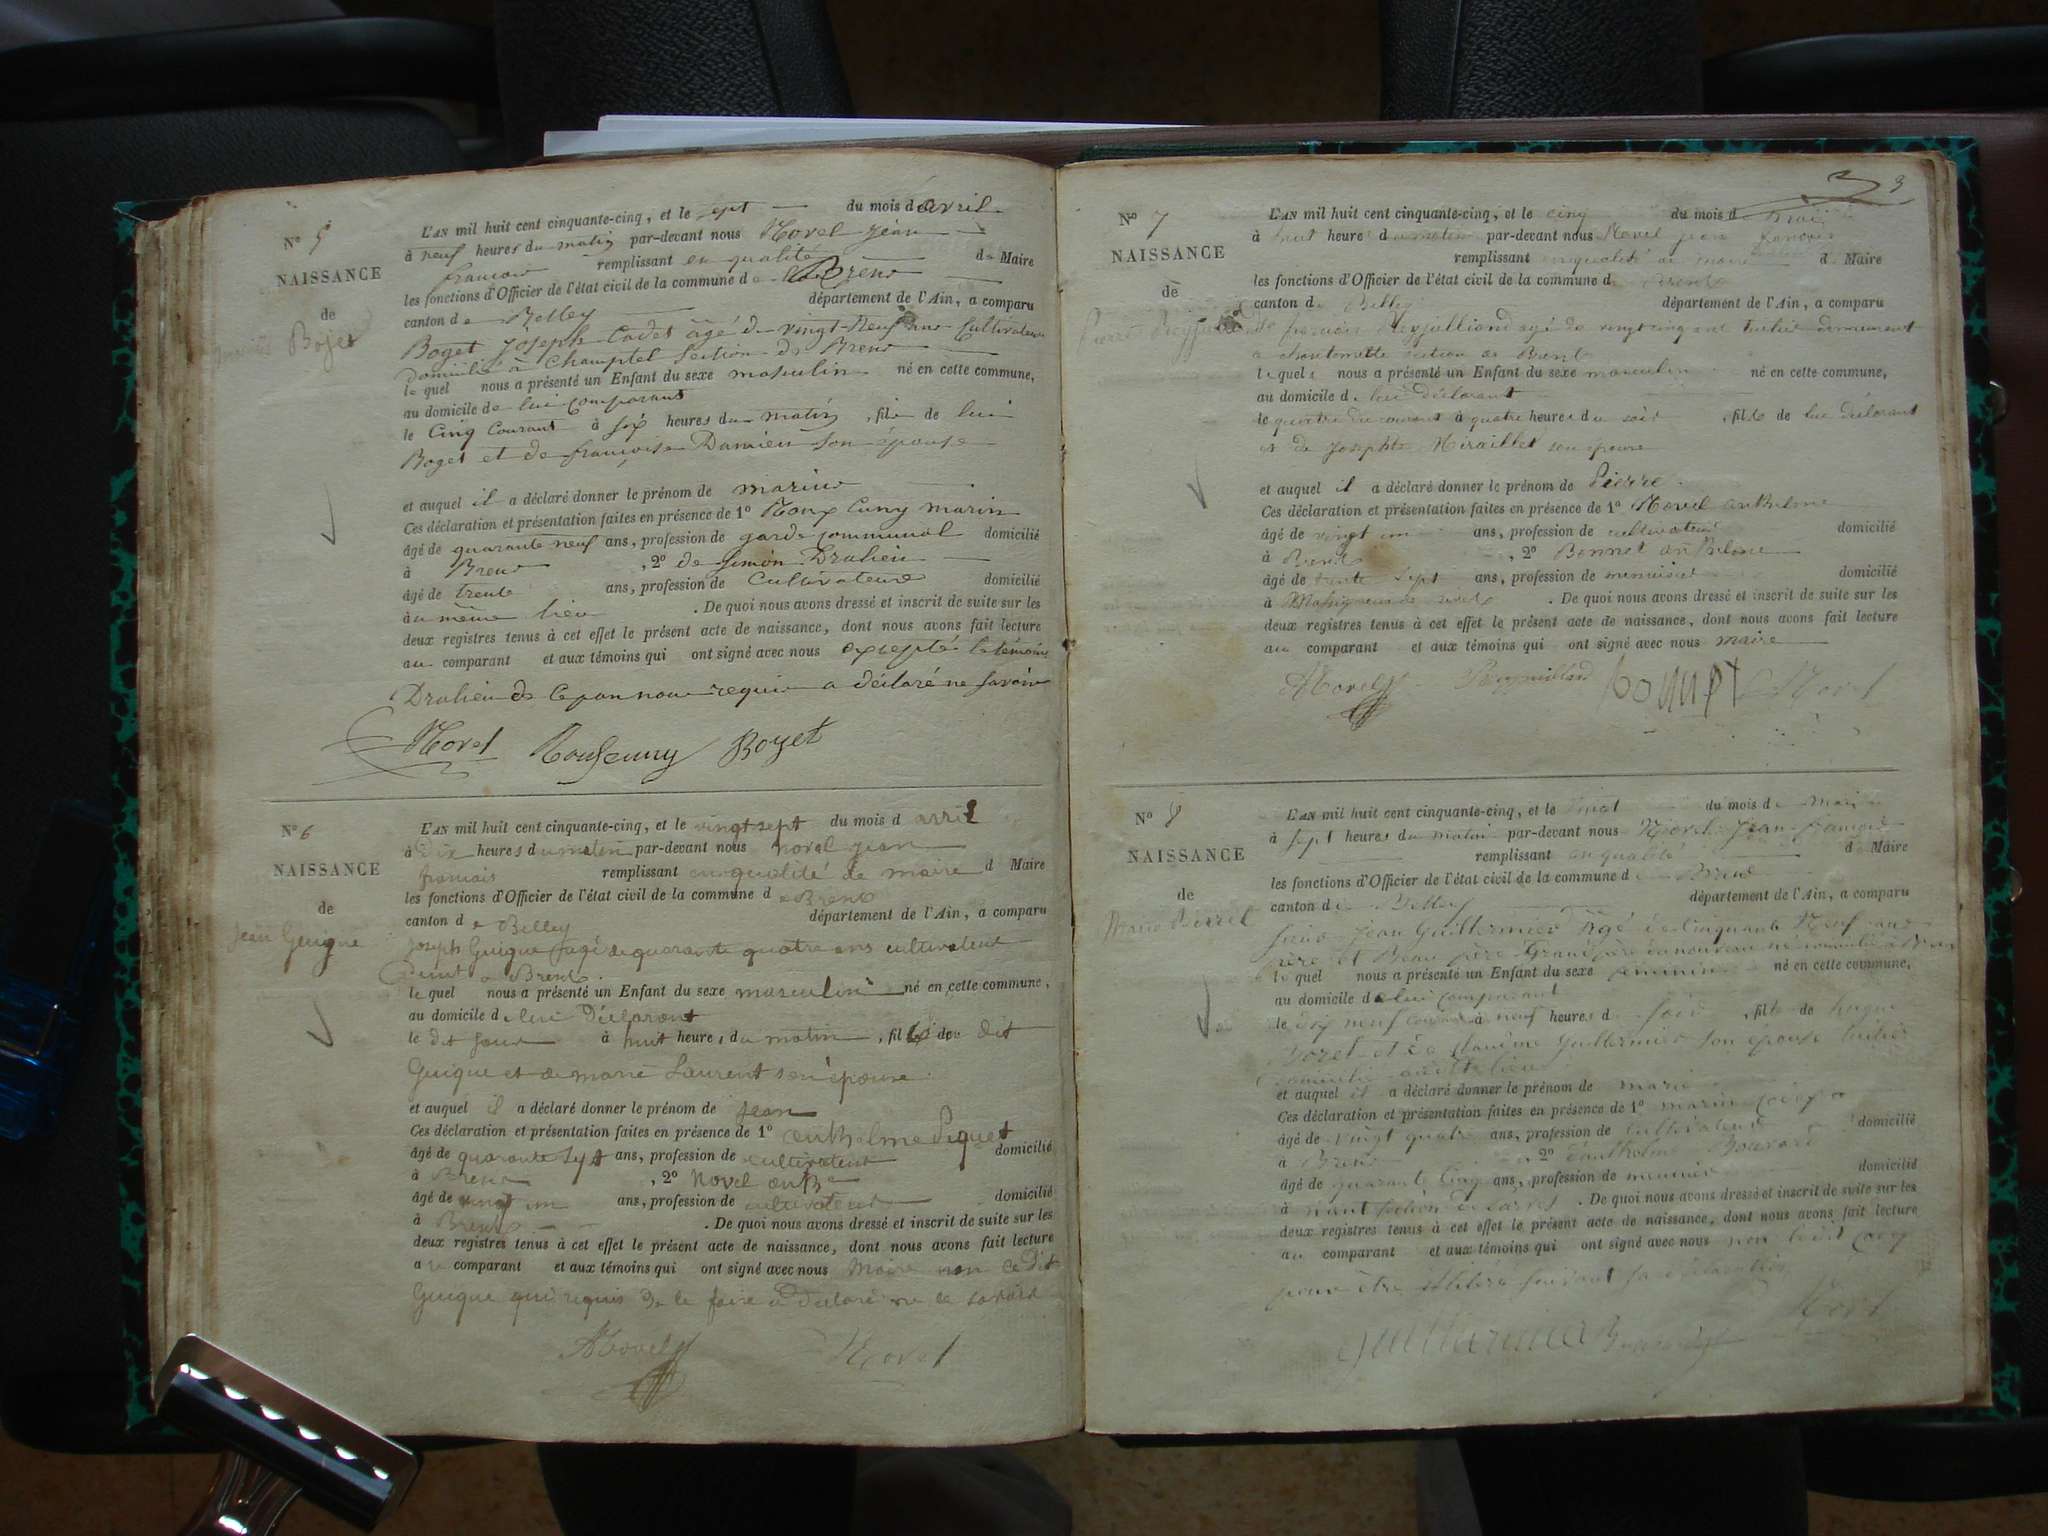 N° 5
NAISSANCE
de
Boget
L'AN mil huit cent cinquante-cinq, et le sept du mois d avril
à neuf heures du matin par-devant nous Novel jean
francois remplissant en qualité de Maire
les fonctions d'Officier de l'état civil de la commune de Brens
canton de Belley département de l'Ain, a comparu
Boget Joseph Cadet âgé de vingt-Neuf ans Cultivateur
domicilié à Champtel Section de Brens
le quel nous a présenté un Enfant du sexe masculin né en cette commune,
au domicile de lui comparant
le Cinq Courant à six heures du matin, fils de lui
Boget et de françoise Damien son épouse
et auquel il a déclaré donner le prénom de marius
Ces déclaration et présentation faites en présence de 1° Roux Cuny marin
âgé de quarante neuf ans, profession de garde communal domicilié
à Brens, 2° de Simon Drahien
âgé de trente ans, profession de Cultivateur domicilié
au même lieu. De quoi nous avons dressé et inscrit de suite sur les
deux registres tenus à cet effet le présent acte de naissance, dont nous avons fait lecture
au comparant et aux témoins qui ont signé avec nous excepté le témoin
Drahien de ce par nous requis a déclaré ne savoir
Novel Boget
N° 6
NAISSANCE
de
Jean Guigue
L'AN mil huit cent cinquante-cinq, et le vingt sept du mois d avril
à dix heures du matin par-devant nous novel jean
francois remplissant en qualité de maire d Maire
les fonctions d'Officier de l'état civil de la commune de Brens
canton de Belley département de l'Ain, a comparu
Joseph Guigue agé de quarante quatre ans cultivateur
a Brens
le quel nous a présenté un Enfant du sexe masculin né en cette commune,
au domicile de lui Déclarant
le dit jour à huit heures du matin, fils du dit
Guigue et de marie Laurent son épouse
et auquel il a déclaré donner le prénom de jean
Ces déclaration et présentation faites en présence de 1° anthelme Piquet
âgé de quarante sept ans, profession de cultivateur domicilié
à Brens, 2° Novel anthe
âgé de vingt un ans, profession de cultivateur domicilié
à Brens. De quoi nous avons dressé et inscrit de suite sur les
deux registres tenus à cet effet le présent acte de naissance, dont nous avons fait lecture
au comparant et aux témoins qui ont signé avec nous Maire non ce dit
Guigue qui requis de le faire a Déclaré ne le savoir
ANovel Novel
3
N° 7
NAISSANCE
de
Pierre
L'AN mil huit cent cinquante-cinq, et le cinq du mois d mai
à huit heures du matin par-devant nous Novel jean francois
remplissant en qualité de maire d Maire
les fonctions d'Officier de l'état civil de la commune de Brens
canton de Belley département de l'Ain, a comparu
francois agé de vingt cinq ans demeurant
section de Brens
le quel nous a présenté un Enfant du sexe masculin né en cette commune,
au domicile de lui déclarant
le quatre du courant à quatre heures du soir, fils de lui déclarant
et de Josephte Miraillet son épouse
et auquel il a déclaré donner le prénom de Pierre
Ces déclaration et présentation faites en présence de 1° Novel anthelme
âgé de vingt un ans, profession de cultivateur domicilié
à Brens, 2° Bonnet anthelme
âgé de trente sept ans, profession de menuisier domicilié
à. De quoi nous avons dressé et inscrit de suite sur les
deux registres tenus à cet effet le présent acte de naissance, dont nous avons fait lecture
au comparant et aux témoins qui ont signé avec nous maire
ANovel bonnet Novel
N° 8
NAISSANCE
de
L'AN mil huit cent cinquante-cinq, et le vingt du mois de mai
à sept heures du matin par-devant nous Novel Jean francois
remplissant en qualité d Maire
les fonctions d'Officier de l'état civil de la commune de Brens
canton de Belley département de l'Ain, a comparu
Jean Guillermier âgé de Cinquante Neuf ans
père et Beau père Grand père du nouveau né domicilié à
le quel nous a présenté un Enfant du sexe feminin né en cette commune,
au domicile de lui comparant
le dix neuf courant à neuf heures du soir, fille de
et de Guillermier son épouse
domicilié au dit lieu
et auquel il a déclaré donner le prénom de marie
Ces déclaration et présentation faites en présence de 1° marin
âgé de vingt quatre ans, profession de Cultivateur domicilié
à Brens, 2° anthelme Bouvard
âgé de quarante Cinq ans, profession de meunier domicilié
à. De quoi nous avons dressé et inscrit de suite sur les
deux registres tenus à cet effet le présent acte de naissance, dont nous avons fait lecture
au comparant et aux témoins qui ont signé avec nous non le dit
pour être illitéré suivant sa déclaration
Guillermier Novel